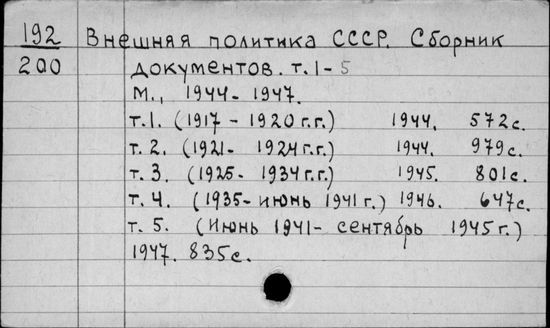 192 Внешняя политика СССР. Сборник
200 документов. т. 1-5
М., 1944-1947.
т. 1. (1917 - 1920 г.г.) 1944. 572 с.
т. 2. (1921- 1924 г.г.) 1944. 979 с.
т. 3. (1925- 1934 г.г.) 1945. 801 с.
т. 4. (1935- июнь 1941 г.) 1946. 647 с.
т. 5. (Июнь 1941- сентябрь 1945 г.)
1947. 835 с.